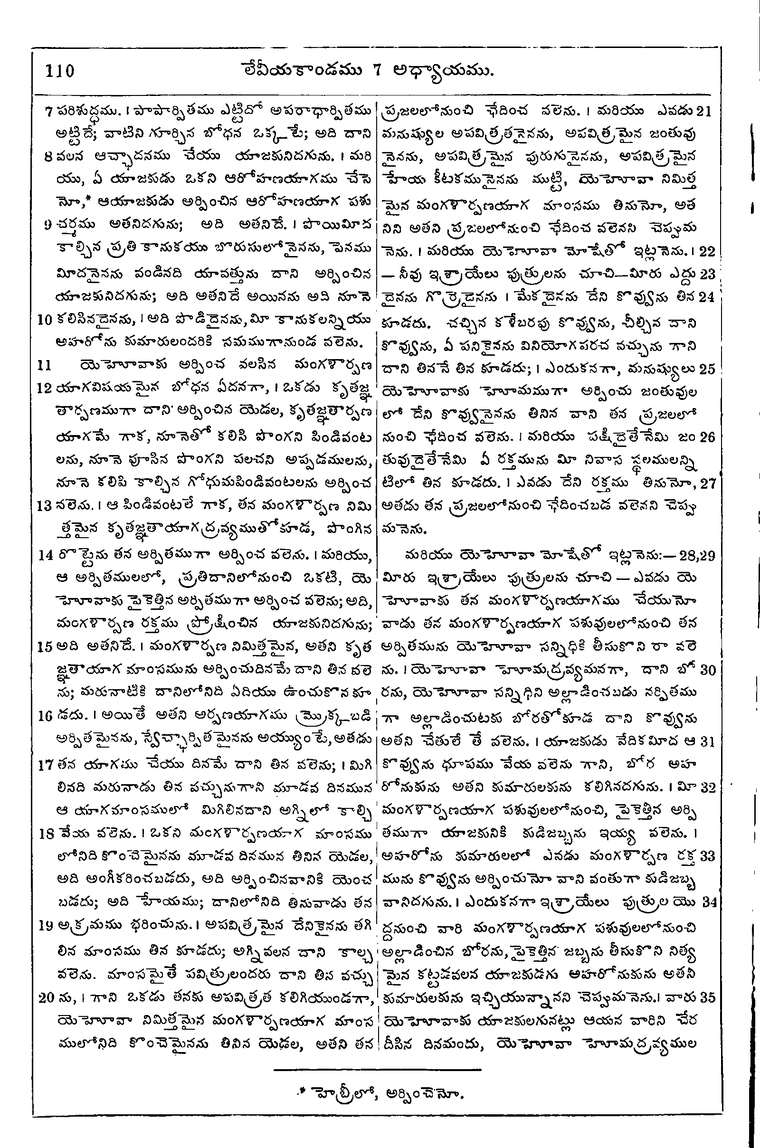 110 లేవీయకాండము 7 అధ్యాయము.
7 పరిశుద్ధము. । పాపార్పితము ఎట్టిదో అపరాధార్పితము
అట్టిదే; వాటిని గూర్చిన బోధన ఒక్కటే; అది దాని
8 వలన ఆచ్ఛాదనము చేయు యాజకునిదగును. । మరి
యు, ఏ యాజకుడు ఒకని ఆరోహణయాగము చేసె
నో,* ఆయాజకుడు అర్పించిన ఆరోహణయాగ పశు
9 చర్మము అతనిదగును; అది అతనిదే. । పొయిమీద
కాల్చిన ప్రతి కానుకయు బొరుసులోనైనను, పెనము
మీదనైనను వండినది యావత్తును దాని అర్పించిన
యాజకునిదగును; అది అతనిదే అయినను అది నూనె
10 కలిసినదైనను, । అది పొడిదైనను, మీ కానుకలన్నియు
అహరోను కుమారులందరికి సమముగానుండ వలెను.
11 యెహోవాకు అర్పించ వలసిన మంగళార్పణ
12 యాగవిషయమైన బోధన ఏదనగా, । ఒకడు కృతజ్ఞ
తార్పణముగా దాని అర్పించిన యెడల, కృతజ్ఞతార్పణ
యాగమే గాక, నూనెతో కలిసి పొంగని పిండివంట
లను, నూనె పూసిన పొంగని పలచని అప్పడములను,
నూనె కలిపి కాల్చిన గోధుమపిండివంటలను అర్పించ
13 వలెను. । ఆ పిండివంటలే గాక, తన మంగళార్పణ నిమి
త్తమైన కృతజ్ఞతాయాగద్రవ్యముతోకూడ, పొంగిన
14 రొట్టెను తన అర్పితముగా అర్పించ వలెను. । మరియు,
ఆ అర్పితములలో, ప్రతిదానిలోనుంచి ఒకటి, యె
హోవాకు పైకెత్తిన అర్పితముగా అర్పించ వలెను; అది,
మంగళార్పణ రక్తము ప్రోక్షించిన యాజకునిదగును;
15 అది అతనిదే. । మంగళార్పణ నిమిత్తమైన, అతని కృత
జ్ఞతాయాగ మాంసమును అర్పించుదినమే దాని తిన వలె
ను; మరునాటికి దానిలోనిది ఏదియు ఉంచుకొన కూ
16 డదు. । అయితే అతని అర్పణయాగము మ్రొక్కబడి
అర్పితమైనను, స్వేచ్ఛార్పితమైనను అయ్యుంటే, అతడు
17 తన యాగము చేయు దినమే దాని తిన వలెను; । మిగి
లినది మరునాడు తిన వచ్చునుగాని మూడవ దినమున
ఆ యాగమాంసములో మిగిలినదాని అగ్నిలో కాల్చి
18 వేయ వలెను. । ఒకని మంగళార్పణయాగ మాంసము
లోనిది కొంచెమైనను మూడవ దినమున తినిన యెడల,
అది అంగీకరించబడదు, అది అర్పించినవానికి యెంచ
బడదు; అది హేయము; దానిలోనిది తినువాడు తన
19 అక్రమము భరించును. । అపవిత్రమైన దేనికైనను తగి
లిన మాంసము తిన కూడదు; అగ్నివలన దాని కాల్చ
వలెను. మాంసమైతే పవిత్రులందరు దాని తిన వచ్చు
20 ను, । గాని ఒకడు తనకు అపవిత్రత కలిగియుండగా,
యెహోవా నిమిత్తమైన మంగళార్పణయాగ మాంస
ములోనిది కొంచెమైనను తినిన యెడల, అతని తన
ప్రజలలోనుంచి ఛేదించ వలెను. । మరియు ఎవడు 21
మనుష్యుల అపవిత్రతనైనను, అపవిత్రమైన జంతువు
నైనను, అపవిత్రమైన పురుగునైనను, అపవిత్రమైన
హేయ కీటకమునైనను ముట్టి, యెహోవా నిమిత్త
మైన మంగళార్పణయాగ మాంసము తినునో, అత
నిని అతని ప్రజలలోనుంచి ఛేదించ వలెనని చెప్పుమ
నెను. । మరియు యెహోవా మోషేతో ఇట్లనెను. । 22
—నీవు ఇశ్రాయేలు పుత్రులను చూచి—మీరు ఎద్దు 23
దైనను గొర్రెదైనను । మేకదైనను దేని కొవ్వును తిన 24
కూడదు. చచ్చిన కళేబరపు కొవ్వును, చీల్చిన దాని
కొవ్వును, ఏ పనికైనను వినియోగపరచ వచ్చును గాని
దాని తిననే తిన కూడదు; । ఎందుకనగా, మనుష్యులు 25
యెహోవాకు హోమముగా అర్పించు జంతువుల
లో దేని కొవ్వునైనను తినిన వాని తన ప్రజలలో
నుంచి ఛేదించ వలెను. । మరియు పక్షిదైతేనేమి జం 26
తువుదైతేనేమి ఏ రక్తమును మీ నివాస స్థలములన్ని
టిలో తిన కూడదు. । ఎవడు దేని రక్తము తినునో, 27
అతడు తన ప్రజలలోనుంచి ఛేదించబడ వలెనని చెప్పు
మనెను.
మరియు యెహోవా మోషేతో ఇట్లనెను:— 28,29
మీరు ఇశ్రాయేలు పుత్రులను చూచి—ఎవడు యె
హోవాకు తన మంగళార్పణయాగము చేయునో
వాడు తన మంగళార్పణయాగ పశువులలోనుంచి తన
అర్పితమును యెహోవా సన్నిధికి తీసుకొని రా వలె
ను. । యెహోవా హోమద్రవ్యమనగా, దాని బో 30
రను, యెహోవా సన్నిధిని అల్లాడించబడు నర్పితము
గా అల్లాడించుటకు బోరతోకూడ దాని కొవ్వును
అతని చేతులే తే వలెను. । యాజకుడు వేదికమీద ఆ 31
కొవ్వును ధూపము వేయ వలెను గాని, బోర అహ
రోనుకును అతని కుమారులకును కలిగినదగును. । మీ 32
మంగళార్పణయాగ పశువులలోనుంచి, పైకెత్తిన అర్పి
తముగా యాజకునికి కుడిజబ్బను ఇయ్య వలెను. ।
అహరోను కుమారులలో ఎవడు మంగళార్పణ రక్త 33
మును కొవ్వును అర్పించునో వాని వంతుగా కుడిజబ్బ
వానిదగును. । ఎందుకనగా ఇశ్రాయేలు పుత్రుల యొ 34
ద్దనుంచి వారి మంగళార్పణయాగ పశువులలోనుంచి
అల్లాడించిన బోరను, పైకెత్తిన జబ్బను తీసుకొని నిత్య
మైన కట్టడవలన యాజకుడగు ఆహరోనుకును అతని
కుమారులకును ఇచ్చియున్నానని చెప్పుమనెను. । వారు 35
యెహోవాకు యాజకులగునట్లు ఆయన వారిని చేర
దీసిన దినమందు, యెహోవా హోమద్రవ్యముల
* హెబ్రీలో, అర్పించెనో.